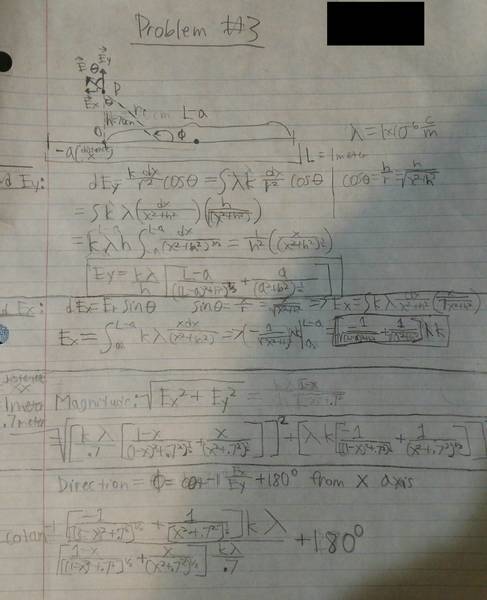 Problem #3
E θ Ey
Ex θ P
h=70cm r L-a
0 φ λ=1×10⁻⁶ C/m
-a L=1meter
Ey: dEy = k dx/r² cosθ = ∫λk dx/r² cosθ cosθ = h/r = h/√(x²+h²)
= ∫kλ(dx/(x²+h²))(h/(x²+h²)^½)
= kλh ∫_{-a}^{L-a} dx/(x²+h²)^{3/2} = 1/h² (x/(x²+h²)^½)
Ey = kλ/h [L-a/((L-a)²+h²)^½ + a/(a²+h²)^½]
Ex: dEx = Er sinθ sinθ = x/r = x/√(x²+h²) => Ex = ∫kλ dx/(x²+h²) (x/√(x²+h²))
Ex = ∫_{-a}^{L-a} kλ xdx/(x²+h²) => |_{-a}^{L-a} = λk
1 meter
.7 meter
Magnitude: √(Ex² + Ey²) =
= √([kλ/.7 [1-x/((1-x)²+.7²)^½ + x/(x²+.7²)^½]]² + [λk[-1/((1-x)²+.7²)^½ + 1/(x²+.7²)^½]]²)
Direction = φ = cot⁻¹ Ex/Ey + 180° from x axis
cotan⁻¹ [-1/((1-x)²+.7²)^½ + 1/(x²+.7²)^½]kλ / [1-x/((1-x)²+.7²)^½ + x/(x²+.7²)^½] kλ/.7 + 180°